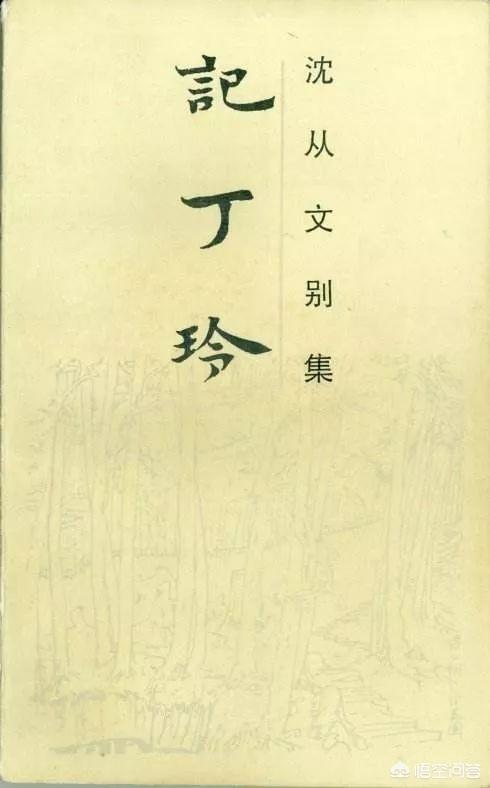 沈从文别集
記丁玲
悟空问答